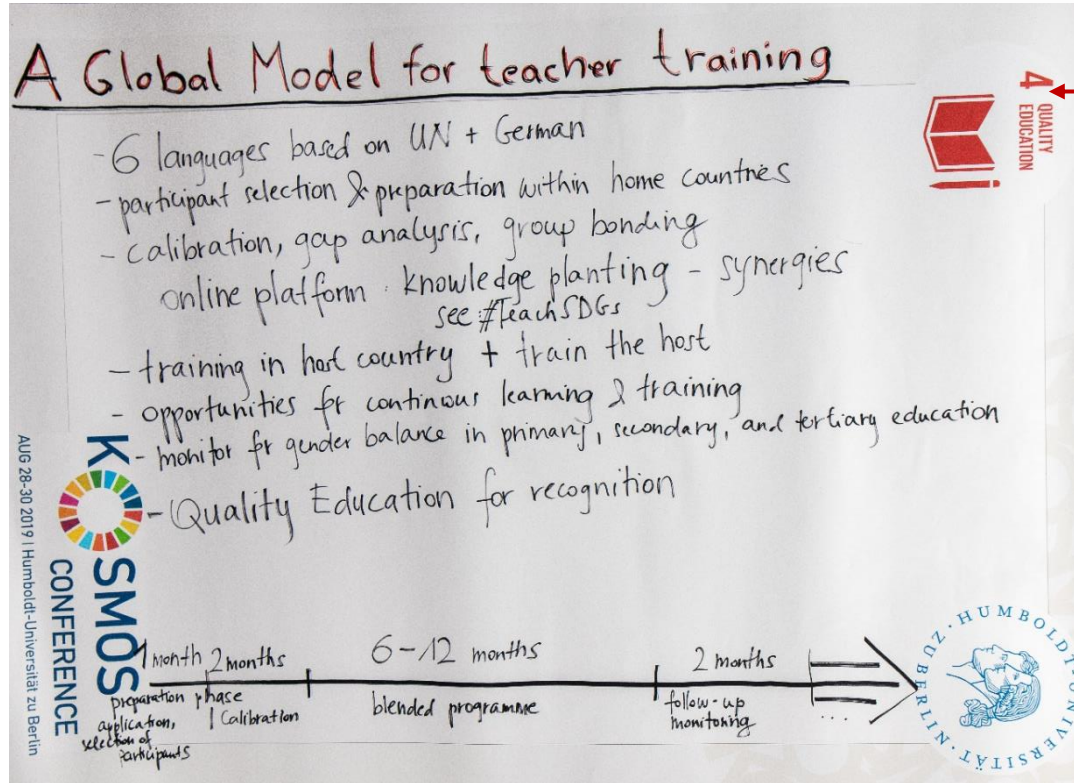 A Global Model for teacher training
- 6 languages based on UN + German
- participant selection & preparation within home countries
- calibration, gap analysis, group bonding
online platform : knowledge planting - synergies
see #TeachSDGs
- training in host country + train the host
- opportunities fr continous learning & training
- monitor fr gender balance in primary, secondary, and tertiary education
- Quality Education for recognition
4 QUALITY
EDUCATION
KOSMOS
CONFERENCE
AUG 28-30 2019 | Humboldt-Universität zu Berlin
1 month 2 months 6-12 months 2 months
preparation phase
application,
selection of
participants
Calibration
blended programme
follow-up
monitoring
....
HUMBOLDT-UNIVERSITÄT ZU BERLIN